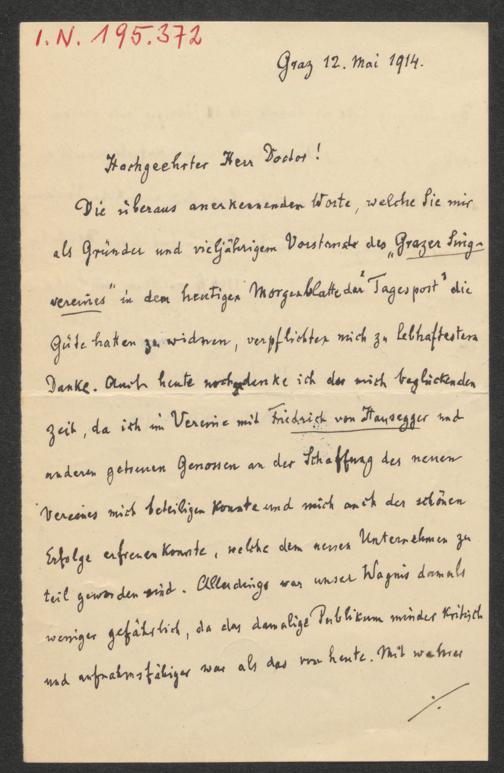 I.N. 195.372
Graz 12. Mai 1914.
Hochgeehrter Herr Doctor!
Die überaus anerkennenden Worte, welche Sie mir
als Gründer und vieljährigem Vorstande des „Grazer Sing-
vereines" in dem heutigen Morgenblatte der "Tagespost" die
Güte hatten zu widmen, verpflichten mich zu lebhaftestem
Danke. Auch heute noch gedenke ich der mich beglückenden
Zeit, da ich im Vereine mit Friedrich von Hausegger und
anderen getreuen Genossen an der Schaffung des neuen
Vereines mich beteiligen konnte und mich auch der schönen
Erfolge erfreuen konnte, welche dem neuen Unternehmen zu
teil geworden sind. Allerdings war unser Wagnis damals
weniger gefährlich, da das damalige Publikum minder kritisch
und aufnahmsfähiger war als das von heute. Mit wahrer
./.